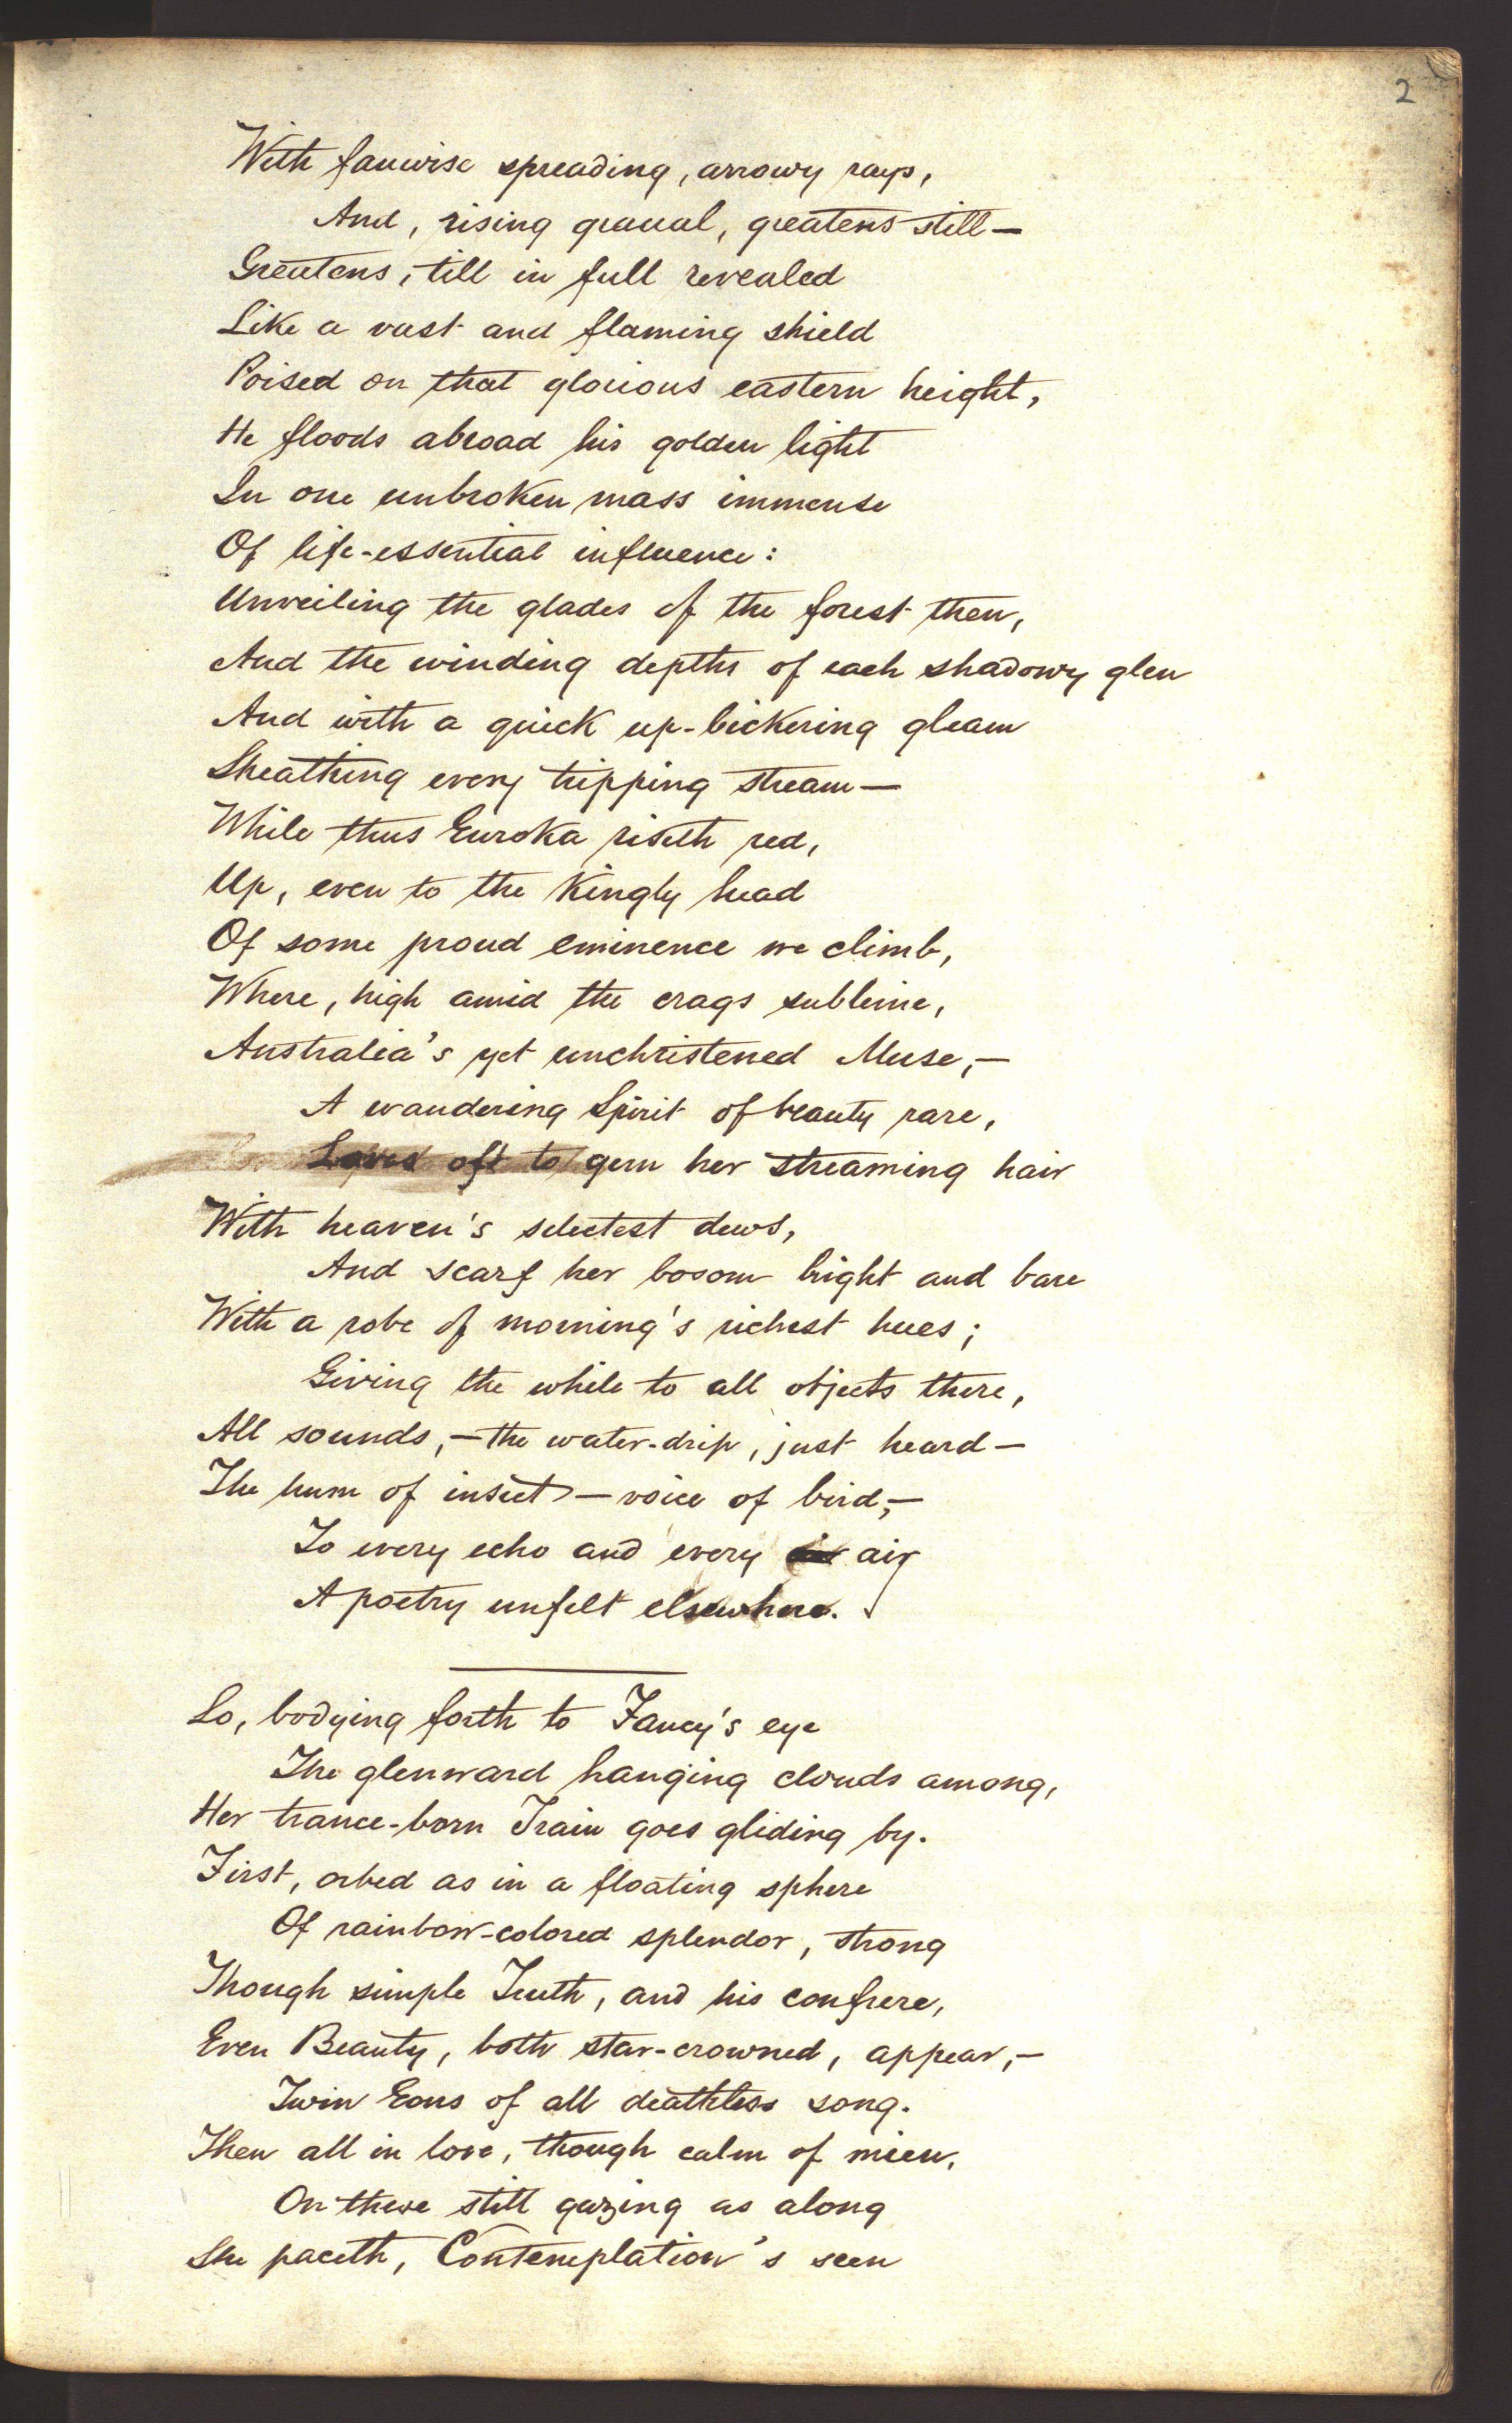 2
With fanwise spreading, arrowy rays,
And, rising gradual, greatens still—
Greatens, till in full revealed
Like a vast and flaming shield
Poised on that glorious eastern height,
He floods abroad his golden light
In one unbroken mass immense
Of life-essential influence:
Unveiling the glades of the forest then,
And the winding depths of each shadowy glen
And with a quick up-bickering gleam
Sheathing every tripping stream—
While thus Euroka riseth red,
Up, even to the Kingly head
Of some proud eminence we climb,
Where, high amid the crags sublime,
Australia's yet unchristened Muse,—
A wandering Spirit of beauty rare,
Loves oft to gem her streaming hair
With heaven's selectest dews,
And scarf her bosom bright and bare
With a robe of morning's richest hues;
Giving the while to all objects there,
All sounds,—the water-drip, just heard—
The hum of insect—voice of bird,—
To every echo and every air
A poetry unfelt elsewhere.
Lo, bodying forth to Fancy's eye
The glenward hanging clouds among,
Her trance-born Train goes gliding by.
First, orbed as in a floating sphere
Of rainbow-colored splendor, strong
Though simple Truth, and his confrere,
Even Beauty, both star-crowned, appear,—
Twin Eons of all deathless song.
Then all in love, though calm of mien,
On these still gazing as along
She paceth, Contemplation's seen